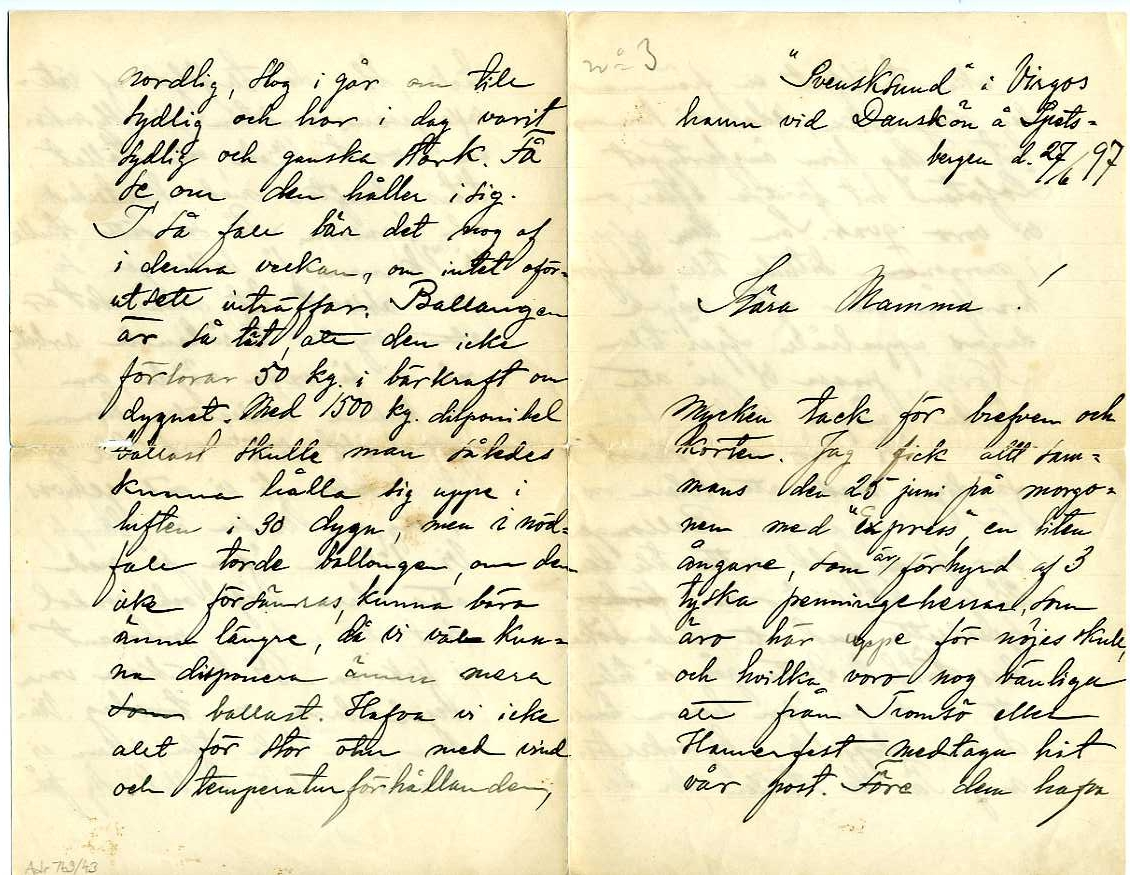 nº 3
"Svensksund" i Virgos
hamn vid Danskön å Spets=
bergen d. 27/6 97
Kära Mamma!
Mycken tack för brefven och
korten. Jag fick allt sam=
mans den 25 juni på morgo=
nen med "Express", en liten
ångare, som är förhyrd af 3
tyska penningeherrar, som
äro här uppe för nöjes skull,
och hvilka voro nog vänliga
att från Tromsö eller
Hammerfest medtaga hit
vår post. Före dem hafva
nordlig, slog i går om till
sydlig och har i dag varit
sydlig och ganska stark. Få
se, om den håller i sig.
I så fall bär det nog af
i denna veckan, om intet oför=
utsett inträffar. Ballongen
är så tät, att den icke
förlorar 50 kg. i bärkraft om
dygnet. Med 1500 kg. disponibel
ballast skulle man således
kunna hålla sig uppe i
luften i 30 dygn, men i nöd=
fall torde ballongen, om den
icke försämras, kunna bära
ännu längre, då vi väl kun=
na disponera ännu mera
som ballast. Hafva vi icke
allt för stor otur med vind
och temperaturförhållanden,
Adr 743/43